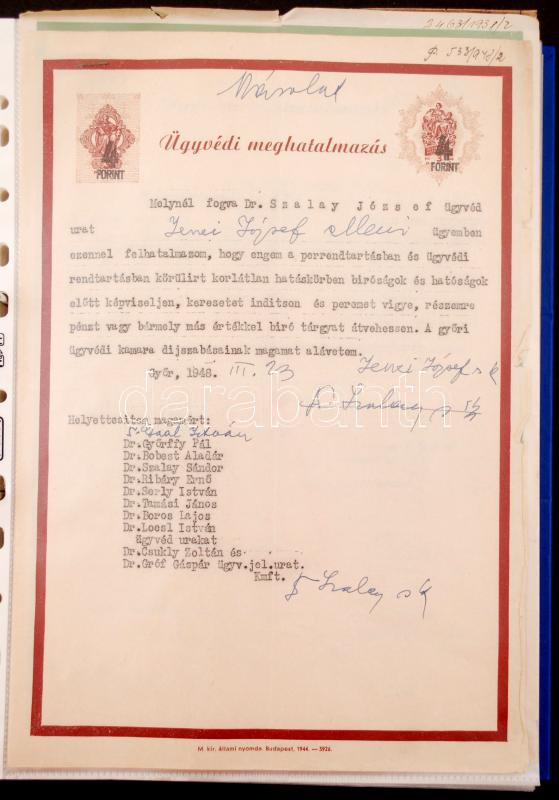 3463/1931/2
P. 533/948/2
Másolat
4
FORINT
Ügyvédi meghatalmazás
4
FORINT
Melynél fogva Dr. Szalay József ügyvéd
urat Jenei József elleni ügyemben
ezennel felhatalmazom, hogy engem a perrendtartásban és ügyvédi
rendtartásban körülirt korlátlan hatáskörben biróságok és hatóságok
előtt képviseljen, keresetet inditson és peremet vigye, részemre
pénzt vagy bármely más értékkel biró tárgyat átvehessen. A győri
ügyvédi kamara dijszabásainak magamat alávetem.
Győr, 1948. III. 23 Jenei József sk
Dr Szalay sk
Helyettesitem magamért:
Gaál István
Dr.Győrffy Pál
Dr.Bobest Aladár
Dr.Szalay Sándor
Dr.Ribáry Ernő
Dr.Serly István
Dr.Tamási János
Dr.Boros Lajos
Dr.Loesl István
ügyvéd urakat
Dr.Csukly Zoltán és
Dr.Gróf Gáspár ügyv.jel.urat.
Kmft.
Dr Szalay sk
darabanth
M. kir. állami nyomda. Budapest, 1944. — 5926.